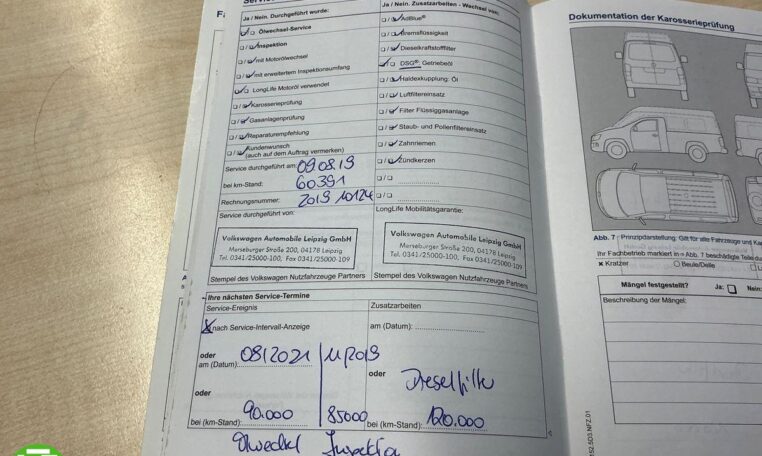 Ja / Nein. Durchgeführt wurde:
Ölwechsel-Service
Inspektion
mit Motorölwechsel
mit erweitertem Inspektionsumfang
LongLife Motoröl verwendet
Karosserieprüfung
Gasanlagenprüfung
Reparaturempfehlung
Kundenwunsch
(auch auf dem Auftrag vermerken)
Service durchgeführt am: 09.08.19
bei km-Stand: 60391
Rechnungsnummer: 2019 10124
Service durchgeführt von:
Volkswagen Automobile Leipzig GmbH
Merseburger Straße 200, 04178 Leipzig
Tel. 0341/25000-100, Fax 0341/25000-109
Stempel des Volkswagen Nutzfahrzeuge Partners
Ja / Nein. Zusatzarbeiten - Wechsel von:
AdBlue®
Bremsflüssigkeit
Dieselkraftstofffilter
DSG® Getriebeöl
Haldexkupplung: Öl
Luftfiltereinsatz
Filter Flüssiggasanlage
Staub- und Pollenfiltereinsatz
Zahnriemen
Zündkerzen
LongLife Mobilitätsgarantie:
Volkswagen Automobile Leipzig GmbH
Merseburger Straße 200, 04178 Leipzig
Tel. 0341/25000-100, Fax 0341/25000-109
Stempel des Volkswagen Nutzfahrzeuge Partners
Ihre nächsten Service-Termine
Service-Ereignis
X nach Service-Intervall-Anzeige
oder
am (Datum): 08/2021 | 11/2019
oder
bei (km-Stand): 90.000 | 85000
Ölwechsel Inspektion
Zusatzarbeiten
am (Datum):
oder Dieselfilter
bei (km-Stand): 120.000
Dokumentation der Karosserieprüfung
Abb. 7 Prinzipdarstellung: Gilt für alle Fahrzeuge und
Ihr Fachbetrieb markiert in » Abb. 7 beschädigte Teile
× Kratzer ○ Beule/Delle
Mängel festgestellt? Ja: Nein:
Beschreibung der Mängel:
152.5D3.NFZ.01